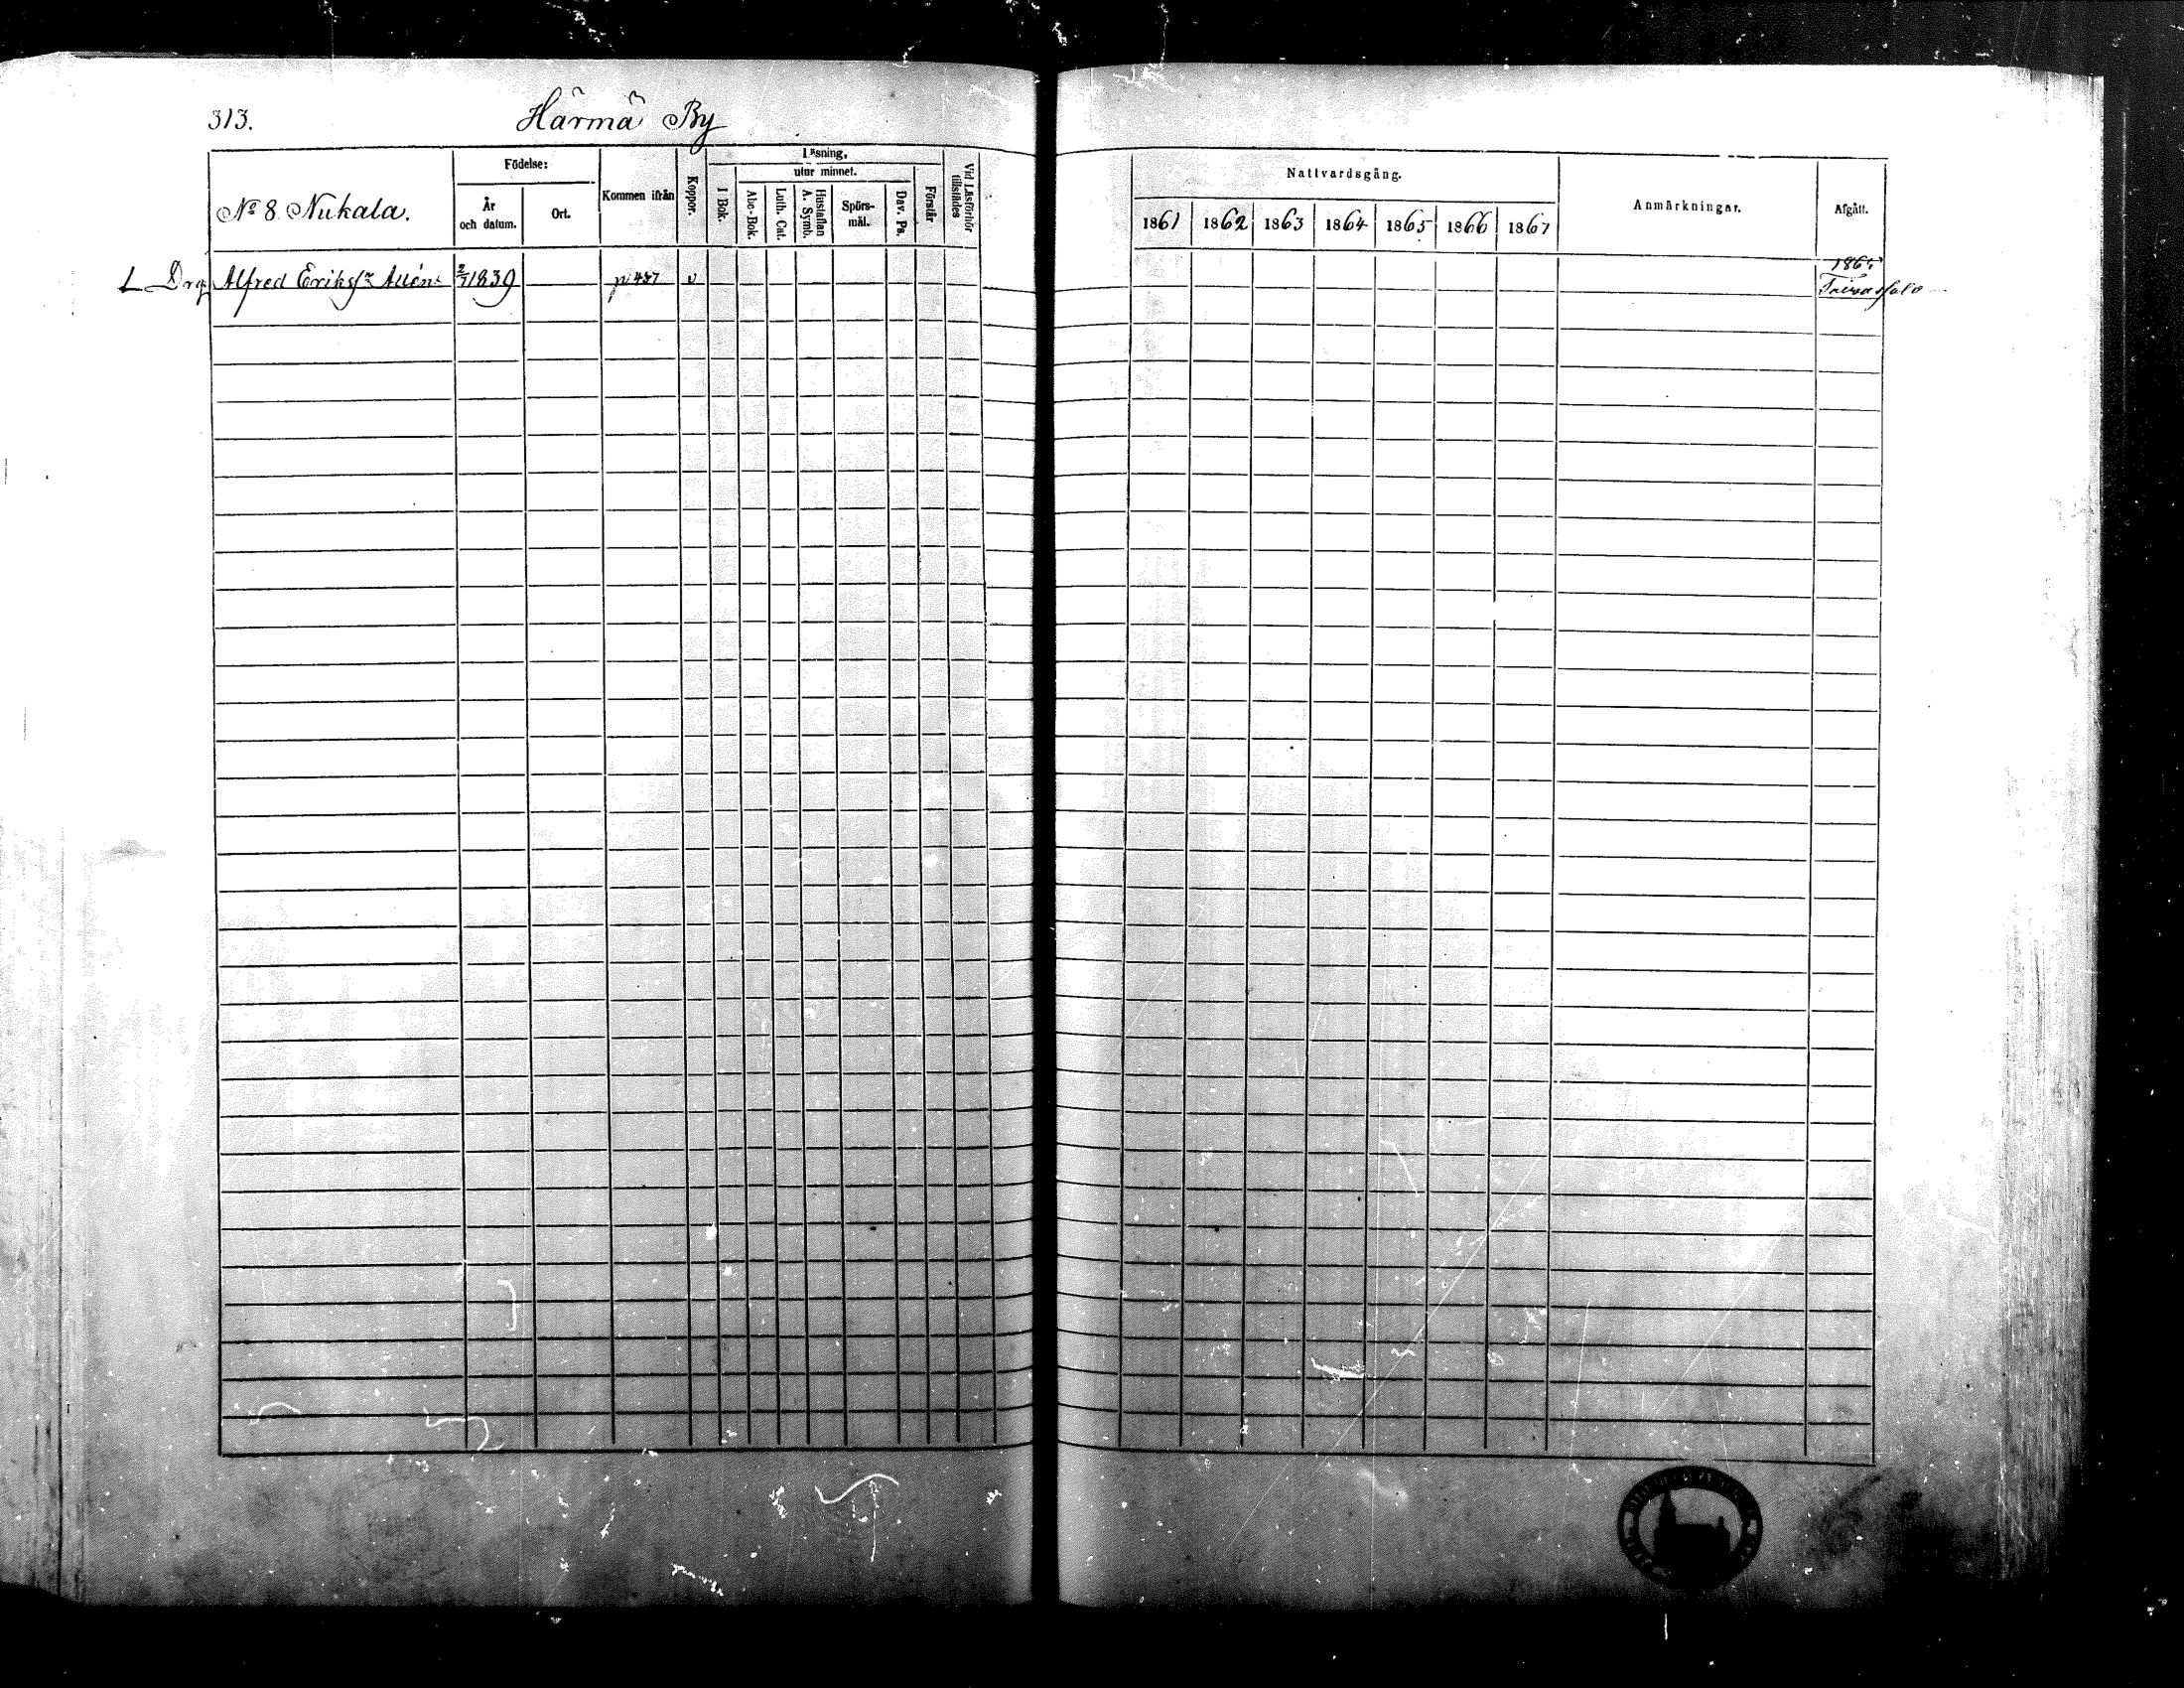 313. Härmä By
Födelse:
Läsning,
utur minnet.
Nattvardsgång.
№ 8 Nukala.
År och datum.
Ort.
Kommen ifrån
Koppor.
I Bok.
Abc-Bok.
Luth. Cat.
Hustaflan A. Symb.
Spörs-mål.
Dav. Ps.
Förstår
Vid Läsförhör tillstädes
1861 1862 1863 1864 1865 1866 1867
Anmärkningar.
Afgått.
L Drg Alfred Eriksſn 2/7 1839 p 437 v